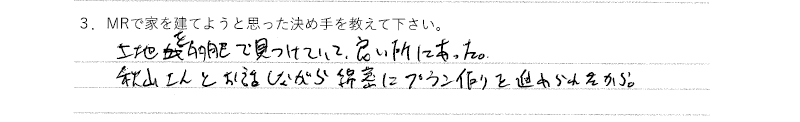 3．MRで家を建てようと思った決め手を教えて下さい。
土地を で見つけていて、良い所にあった。
秋山さんとお話しながら綿密にプラン作りを進められるから。